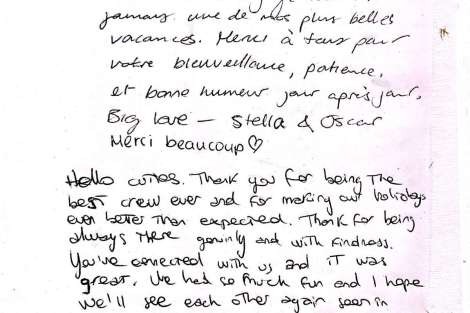 jamais une de nos plus belles
vacances. Merci à tous pour
votre bienveillance, patience,
et bonne humeur jour après jour.
Big love – Stella & Oscar
Merci beaucoup♡
Hello cuties. Thank you for being the
best crew ever and for making our holidays
even better than expected. Thank for being
always there genuinly and with kindness.
You've connected with us and it was
great. We had so much fun and I hope
we'll see each other again soon in